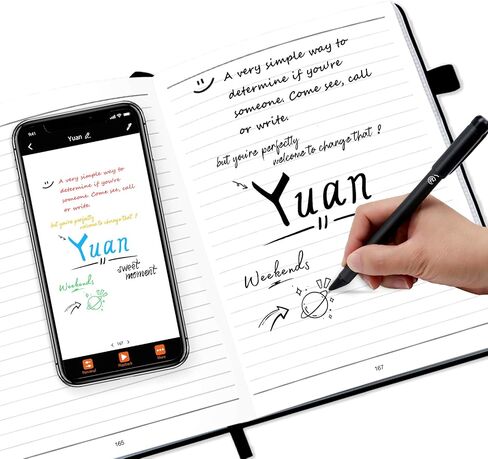 A very simple way to
determine if you're
someone. Come see, call
or write.
but you're perfectly
welcome to change that!
Yuan
Weekends
167
165
9:41
Yuan
A very simple way to
determine if you're
someone. Come see, call
or write.
but you're perfectly
welcome to change that!
Yuan
sweet
moment
Weekends
< 167 >
Playback
More